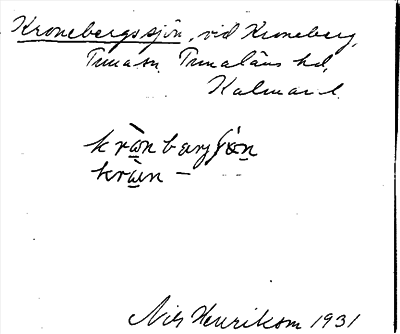 Kronebergssjön, vid Kroneberg,
Tuna sn. Tunaläns hd,
Kalmar l.
kràn bærjʃön
kràn –
Nils Henrikson 1931